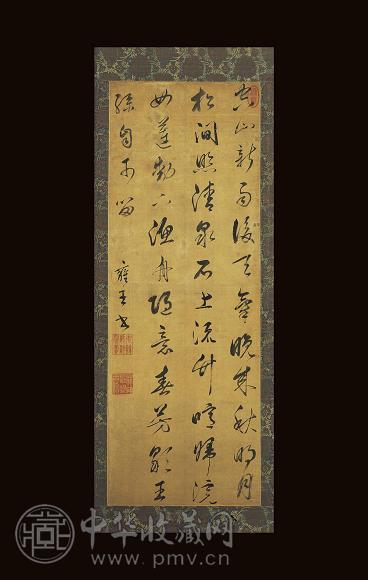 空山新雨後天氣晚來秋明月
松間照清泉石上流竹喧歸浣
女蓮動下漁舟隨意春芳歇王
孫自可留
雍王書
中华收藏网
www.pmv.cn